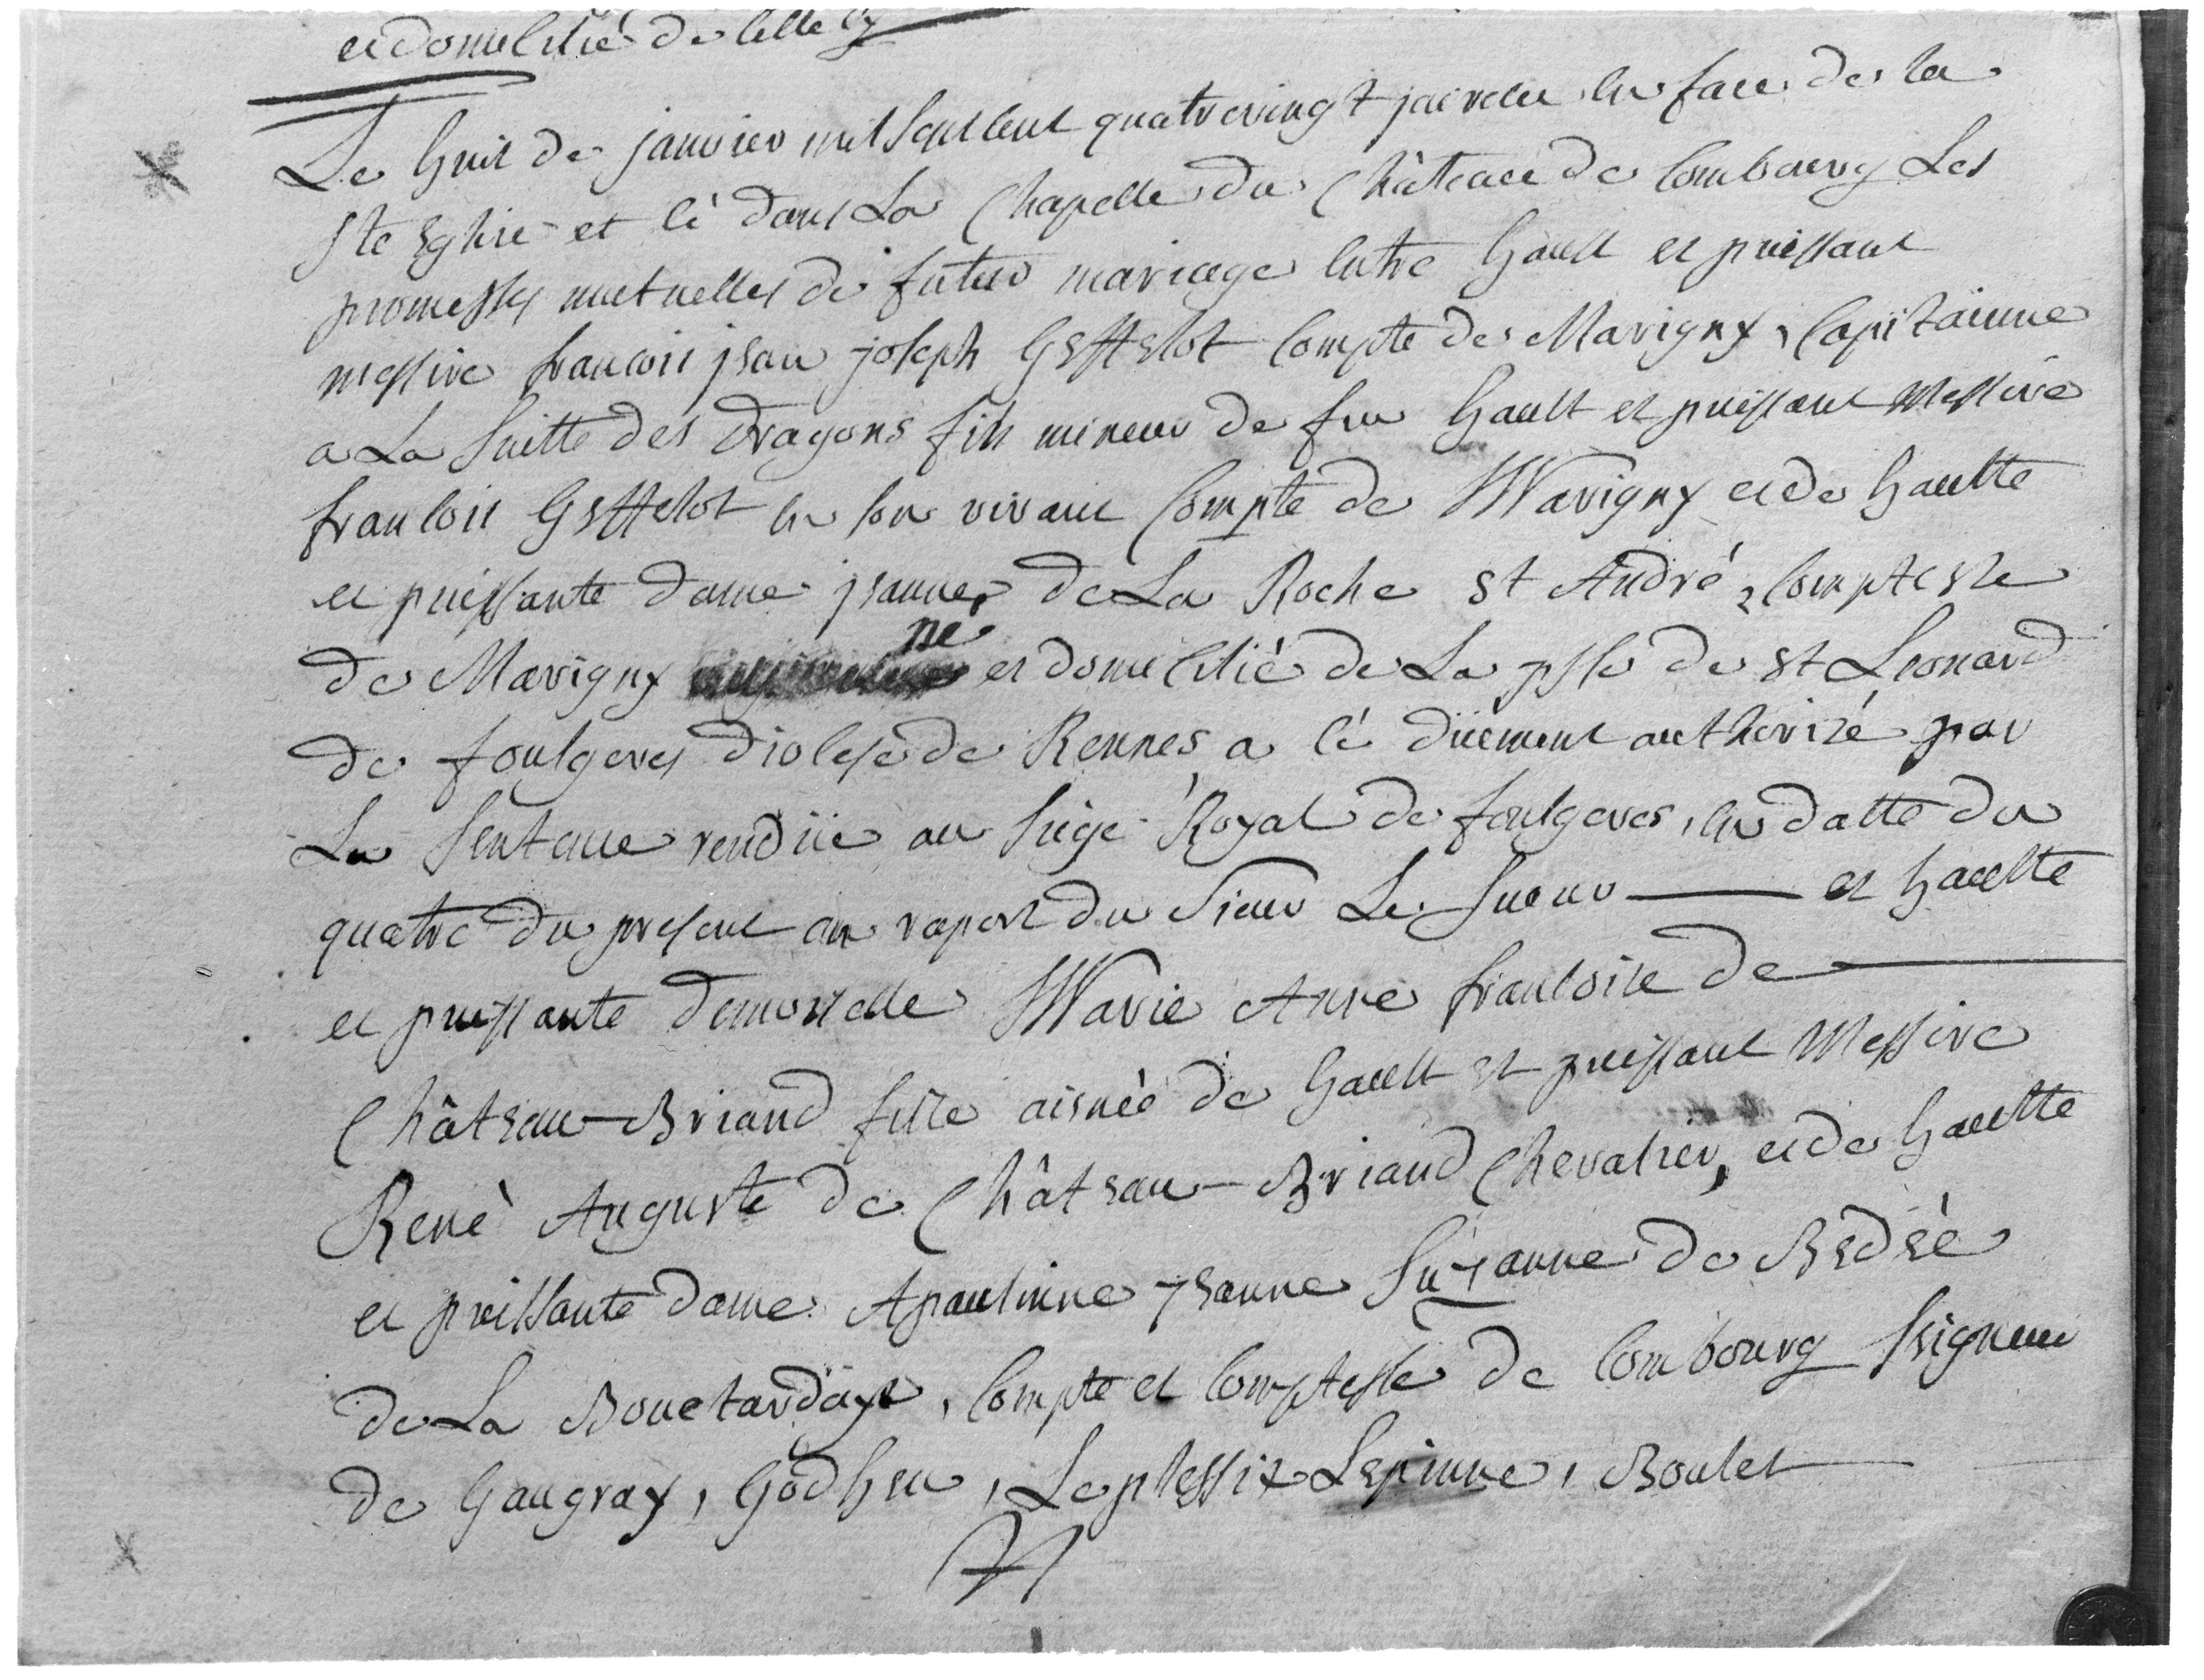 et domicilié de celle cy
Le huit de janvier mil sept cent quatrevingt j'ai reçeu en face de la
Ste Eglise et cè dans La Chapelle du Château de Combourg Les
promesses mutuelles de futur mariage entre hault et puissant
messire francois jean joseph Geffelot Compte de Marigny, Capitainne
a La suitte des dragons fils mineur de feu hault et puissant Messire
francois Geffelot en son vivant Compte de Marigny et de haulte
et puissante dame jeanne de La Roche St André, Comptesse
de Marigny né et domicilié de La psse de St Leonard
de foulgeres diocese de Rennes a cè düement authorizé par
La Sentence rendüe au siege Royal de foulgeres, en datte du
quatre du present au raport du Sieur Le Sueur — et haulte
et puissante demoiselle Marie Anne francoise de —
Château-Briand fille aisnée de hault et puissant Messire
René Auguste de Château-Briand Chevalier, et de haulte
et puissante dame Apaulinne jeanne Suzanne de Bedéé
de La Bouetardaye, Compte et Comptesse de Combourg Seigneur
de Gaugray, Godheu, Le plessix Lepinne, Boulet